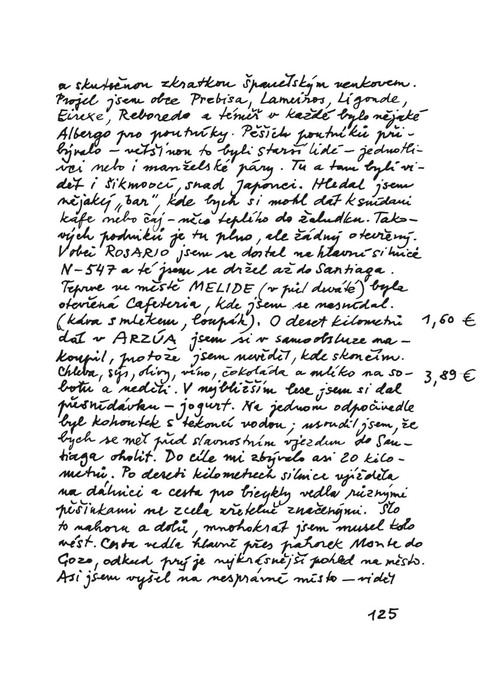 a skutečnou zkratkou španělským venkovem.
Projel jsem obce Prebisa, Lameiros, Ligonde,
Eirexe, Reboredo a téměř v každé bylo nějaké
Albergo pro poutníky. Pěších poutníků při-
bývalo – většinou to byli starší lidé – jednotli-
vci nebo i manželské páry. Tu a tam byli vi-
dět i šikmoocí, snad Japonci. Hledal jsem
nějaký „bar", kde bych si mohl dát k snídani
kafe nebo čaj – něco teplého do žaludku. Tako-
vých podniků je tu plno, ale žádný otevřený.
V obci ROSARIO jsem se dostal na hlavní silnici
N-547 a té jsem se držel až do Santiaga.
Teprve ve městě MELIDE (v půl deváté) byla
otevřená Cafeteria, kde jsem se nasnídal.
(káva s mlékem, loupák). O deset kilometrů 1,60 €
dál v ARZÚA jsem si v samoobsluze na-
koupil, protože jsem nevěděl, kde skončím.
Chleba, sýr, olivy, víno, čokoláda a mléko na so- 3,89 €
botu a neděli. V nejbližším lese jsem si dal
přesnídávku – jogurt. Na jednom odpočívadle
byl kohoutek s tekoucí vodou; usoudil jsem, že
bych se měl před slavnostním vjezdem do San-
tiaga oholit. Do cíle mi zbývalo asi 20 kilo-
metrů. Po deseti kilometrech silnice vyjížděla
na dálnici a cesta pro bicykly vedla různými
pěšinkami ne zcela zřetelně značenými. Šlo
to nahoru a dolů, mnohokrát jsem musel kolo
vést. Cesta vedla hlavně přes pahorek Monte do
Gozo, odkud prý je nejkrásnější pohled na město.
Asi jsem vyšel na nesprávné místo – viděl
125